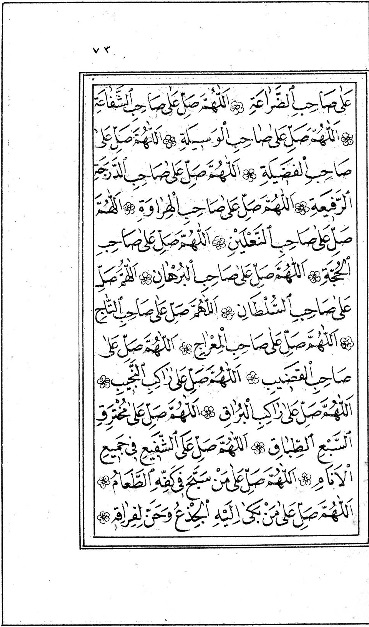 ٧٣
عَلَى صَاحِبِ الضَّرَاعَةِ ۞ اَللّٰهُمَّ صَلِّ عَلَى صَاحِبِ الشَّفَاعَةِ
۞ اَللّٰهُمَّ صَلِّ عَلَى صَاحِبِ الْوَسِيلَةِ ۞ اَللّٰهُمَّ صَلِّ عَلَى
صَاحِبِ الْفَضِيلَةِ ۞ اَللّٰهُمَّ صَلِّ عَلَى صَاحِبِ الدَّرَجَةِ
الرَّفِيعَةِ ۞ اَللّٰهُمَّ صَلِّ عَلَى صَاحِبِ الْهِرَاوَةِ ۞ اَللّٰهُمَّ
صَلِّ عَلَى صَاحِبِ النَّعْلَيْنِ ۞ اَللّٰهُمَّ صَلِّ عَلَى صَاحِبِ
الْحُجَّةِ ۞ اَللّٰهُمَّ صَلِّ عَلَى صَاحِبِ الْبُرْهَانِ ۞ اَللّٰهُمَّ صَلِّ
عَلَى صَاحِبِ السُّلْطَانِ ۞ اَللّٰهُمَّ صَلِّ عَلَى صَاحِبِ التَّاجِ
۞ اَللّٰهُمَّ صَلِّ عَلَى صَاحِبِ الْمِعْرَاجِ ۞ اَللّٰهُمَّ صَلِّ عَلَى
صَاحِبِ الْقَضِيبِ ۞ اَللّٰهُمَّ صَلِّ عَلَى رَاكِبِ النَّجِيبِ ۞
اَللّٰهُمَّ صَلِّ عَلَى رَاكِبِ الْبُرَاقِ ۞ اَللّٰهُمَّ صَلِّ عَلَى مُخْتَرِقِ
السَّبْعِ الطِّبَاقِ ۞ اَللّٰهُمَّ صَلِّ عَلَى الشَّفِيعِ فِي جَمِيعِ
الْاَنَامِ ۞ اَللّٰهُمَّ صَلِّ عَلَى مَنْ سَبَّحَ فِي كَفِّهِ الطَّعَامُ ۞
اَللّٰهُمَّ صَلِّ عَلَى مَنْ بَكَى اِلَيْهِ الْجِذْعُ وَحَنَّ لِفِرَاقِهِ ۞